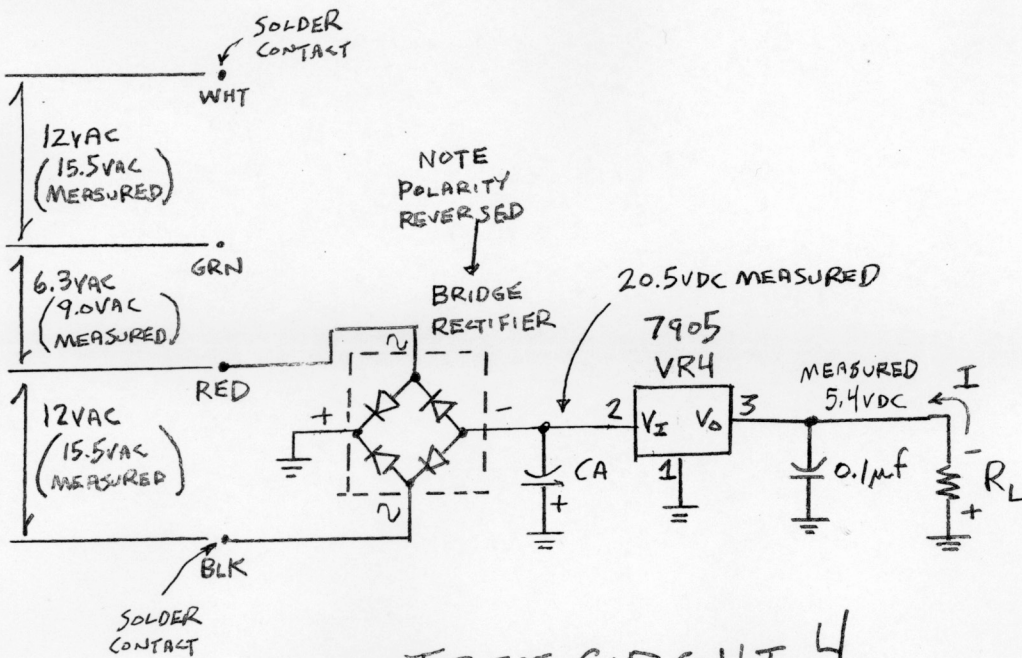 SOLDER
CONTACT
WHT
12VAC
(15.5VAC
MEASURED)
GRN
6.3VAC
(9.0VAC
MEASURED)
RED
12VAC
(15.5VAC
MEASURED)
BLK
SOLDER
CONTACT
NOTE
POLARITY
REVERSED
BRIDGE
RECTIFIER
~
+
-
~
20.5VDC MEASURED
CA
+
7905
VR4
2
VI
VO
3
1
MEASURED
5.4VDC
0.1µf
I
-
RL
+
TEST CIRCUIT 4